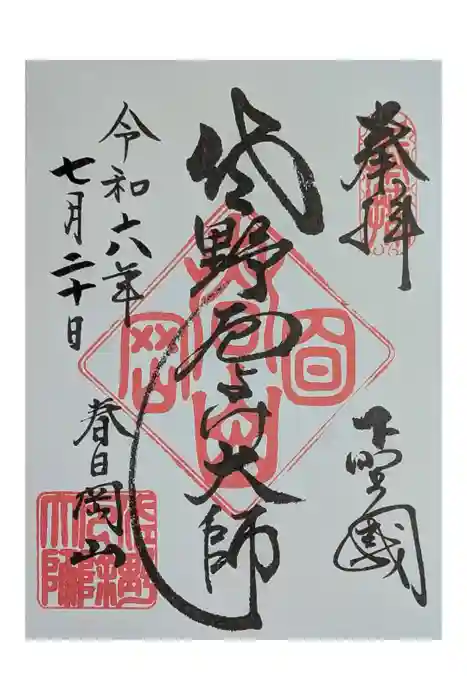 奉拝
下野國
佐野厄よけ大師
令和六年
七月二十日
春日岡山